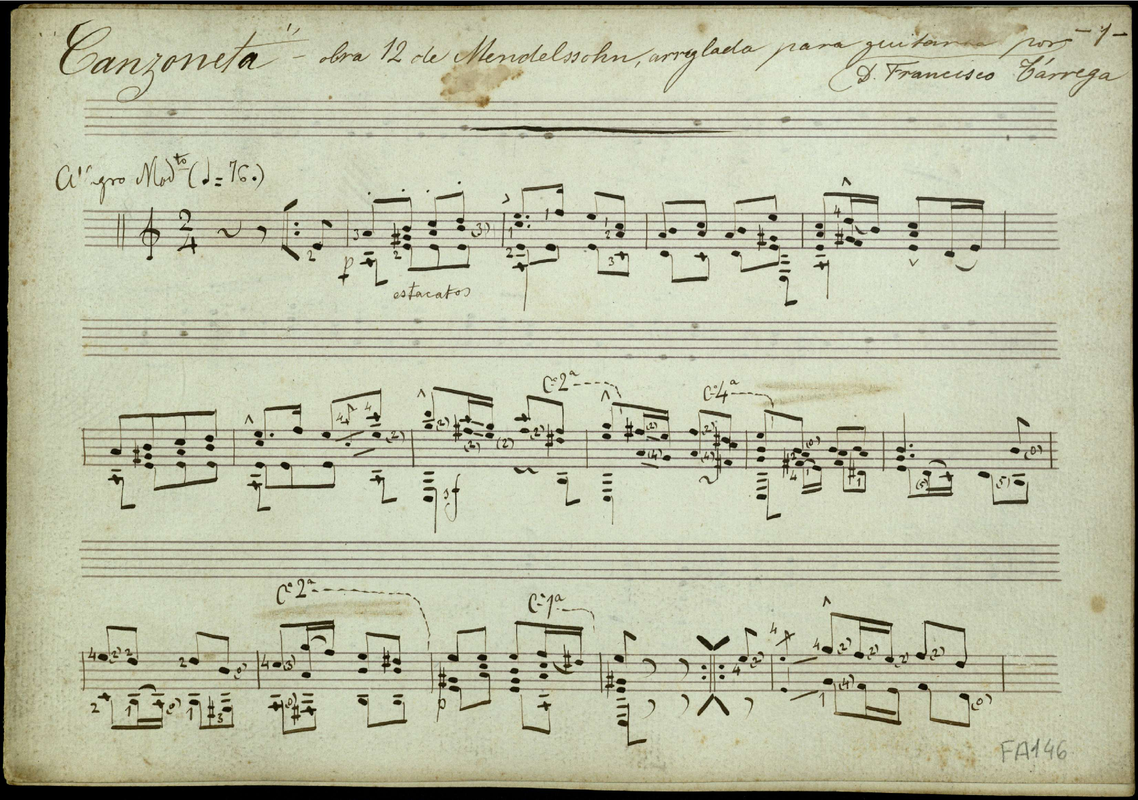 "Canzoneta" – obra 12 de Mendelssohn, arreglada para guitarra por – 1 –
D. Francisco Tárrega
Allegro Modto (♩=76.)
2
4
p
estacatos
C.2ª
C.4ª
sf
C.2ª
C.1ª
p
FA146